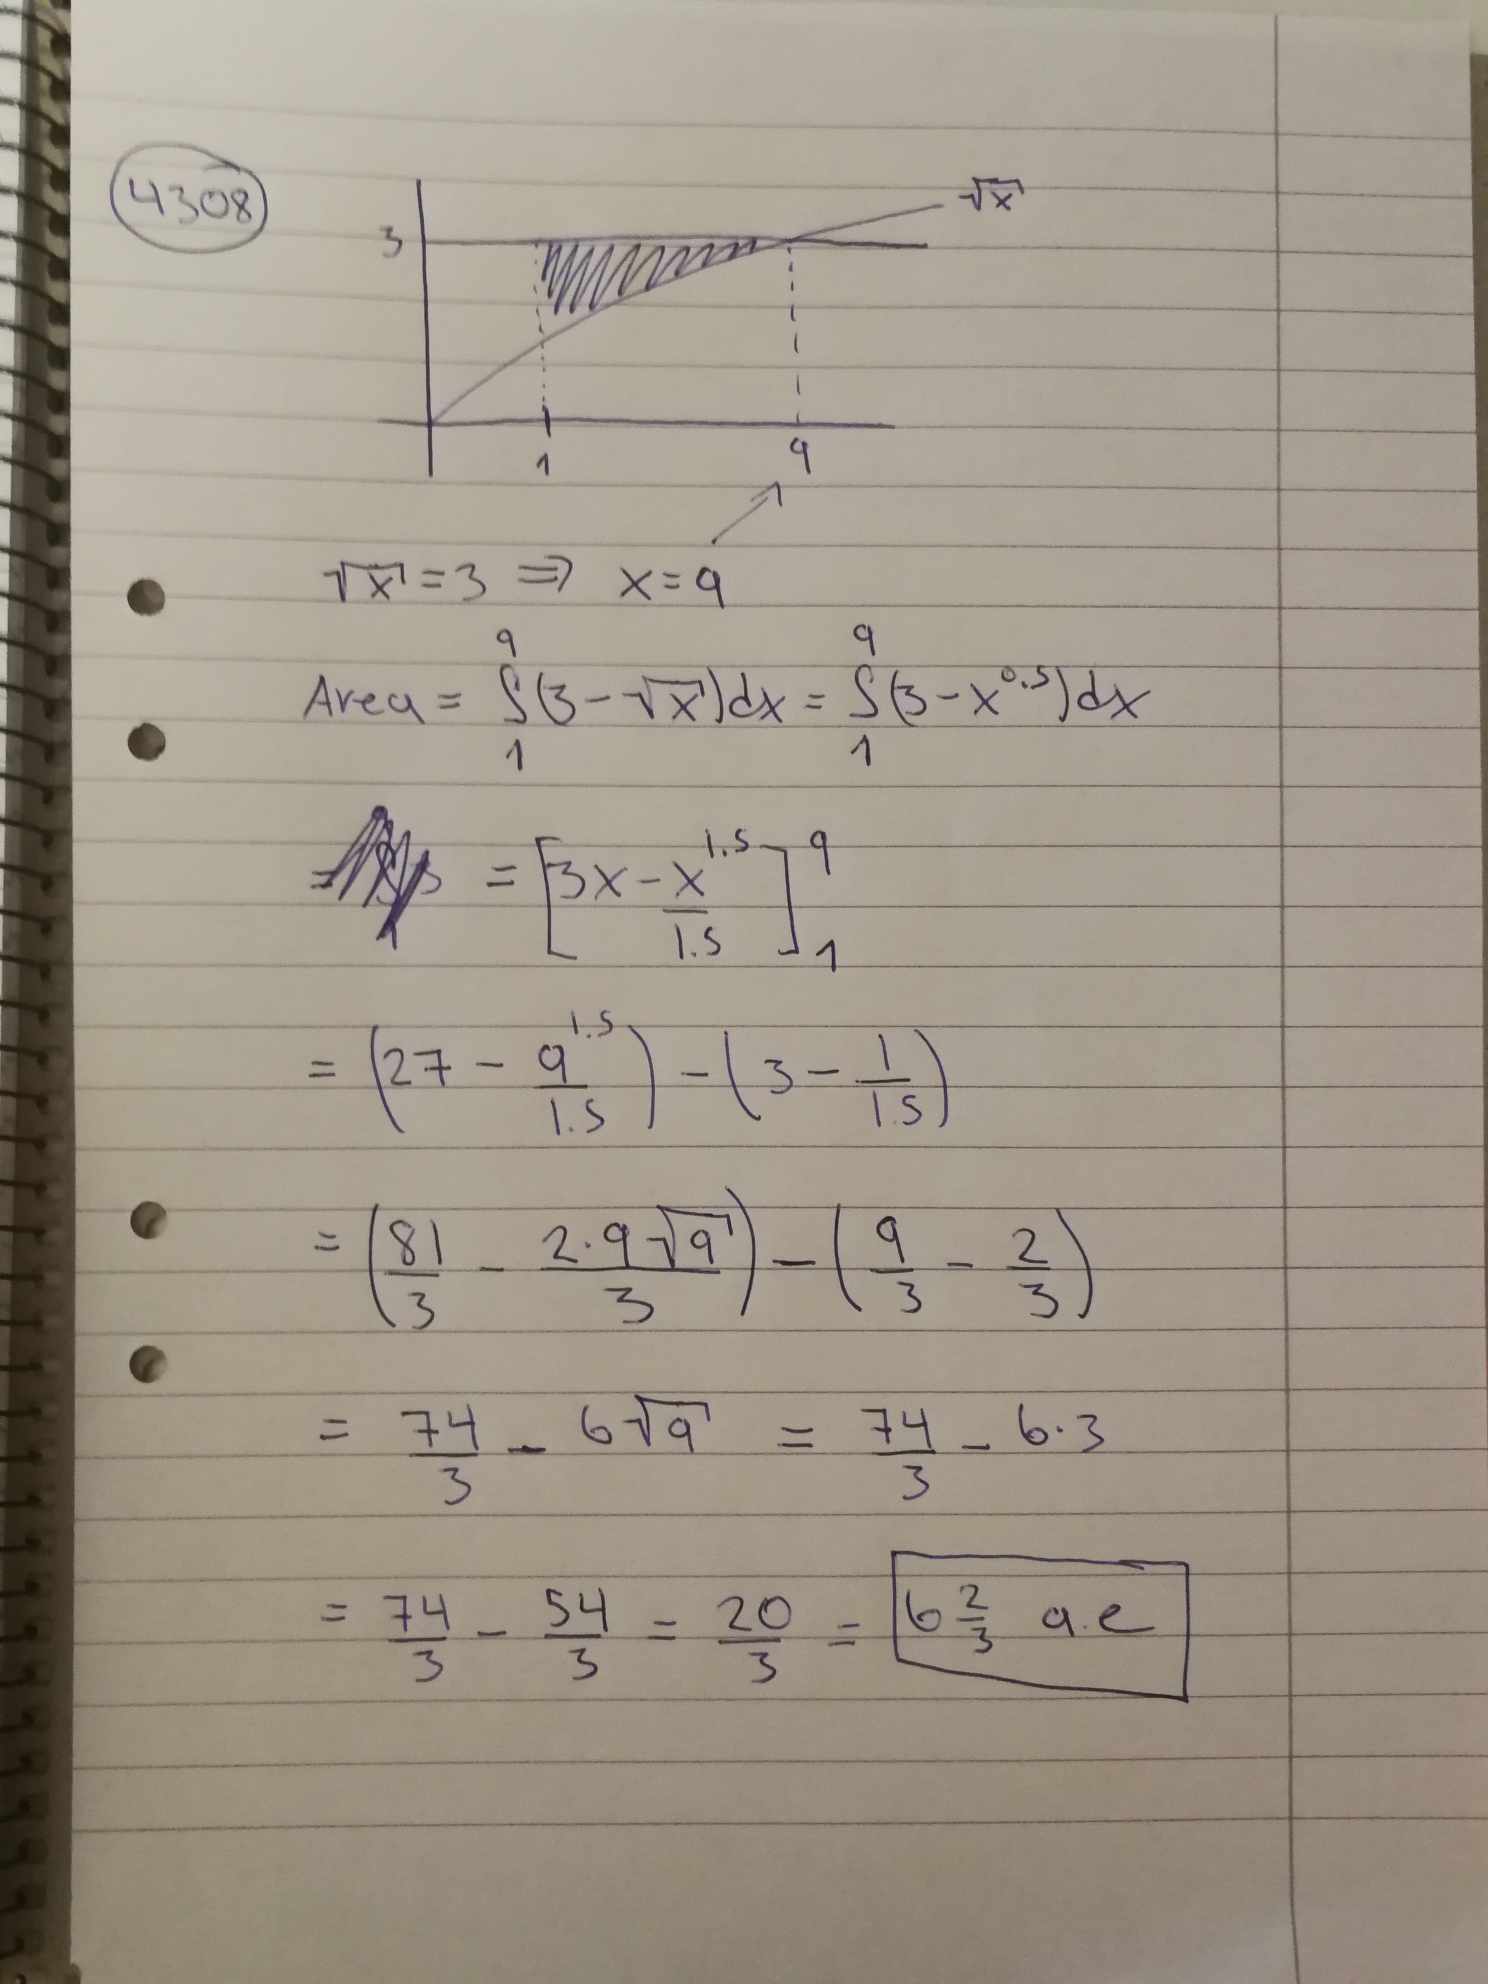 4308
√x
3
1 9
√x = 3 ⇒ x = 9
Area = ∫₁⁹ (3 - √x) dx = ∫₁⁹ (3 - x^0.5) dx
= [3x - x^1.5/1.5]₁⁹
= (27 - 9^1.5/1.5) - (3 - 1/1.5)
= (81/3 - 2·9√9/3) - (9/3 - 2/3)
= 74/3 - 6√9 = 74/3 - 6·3
= 74/3 - 54/3 = 20/3 = 6 2/3 a.e